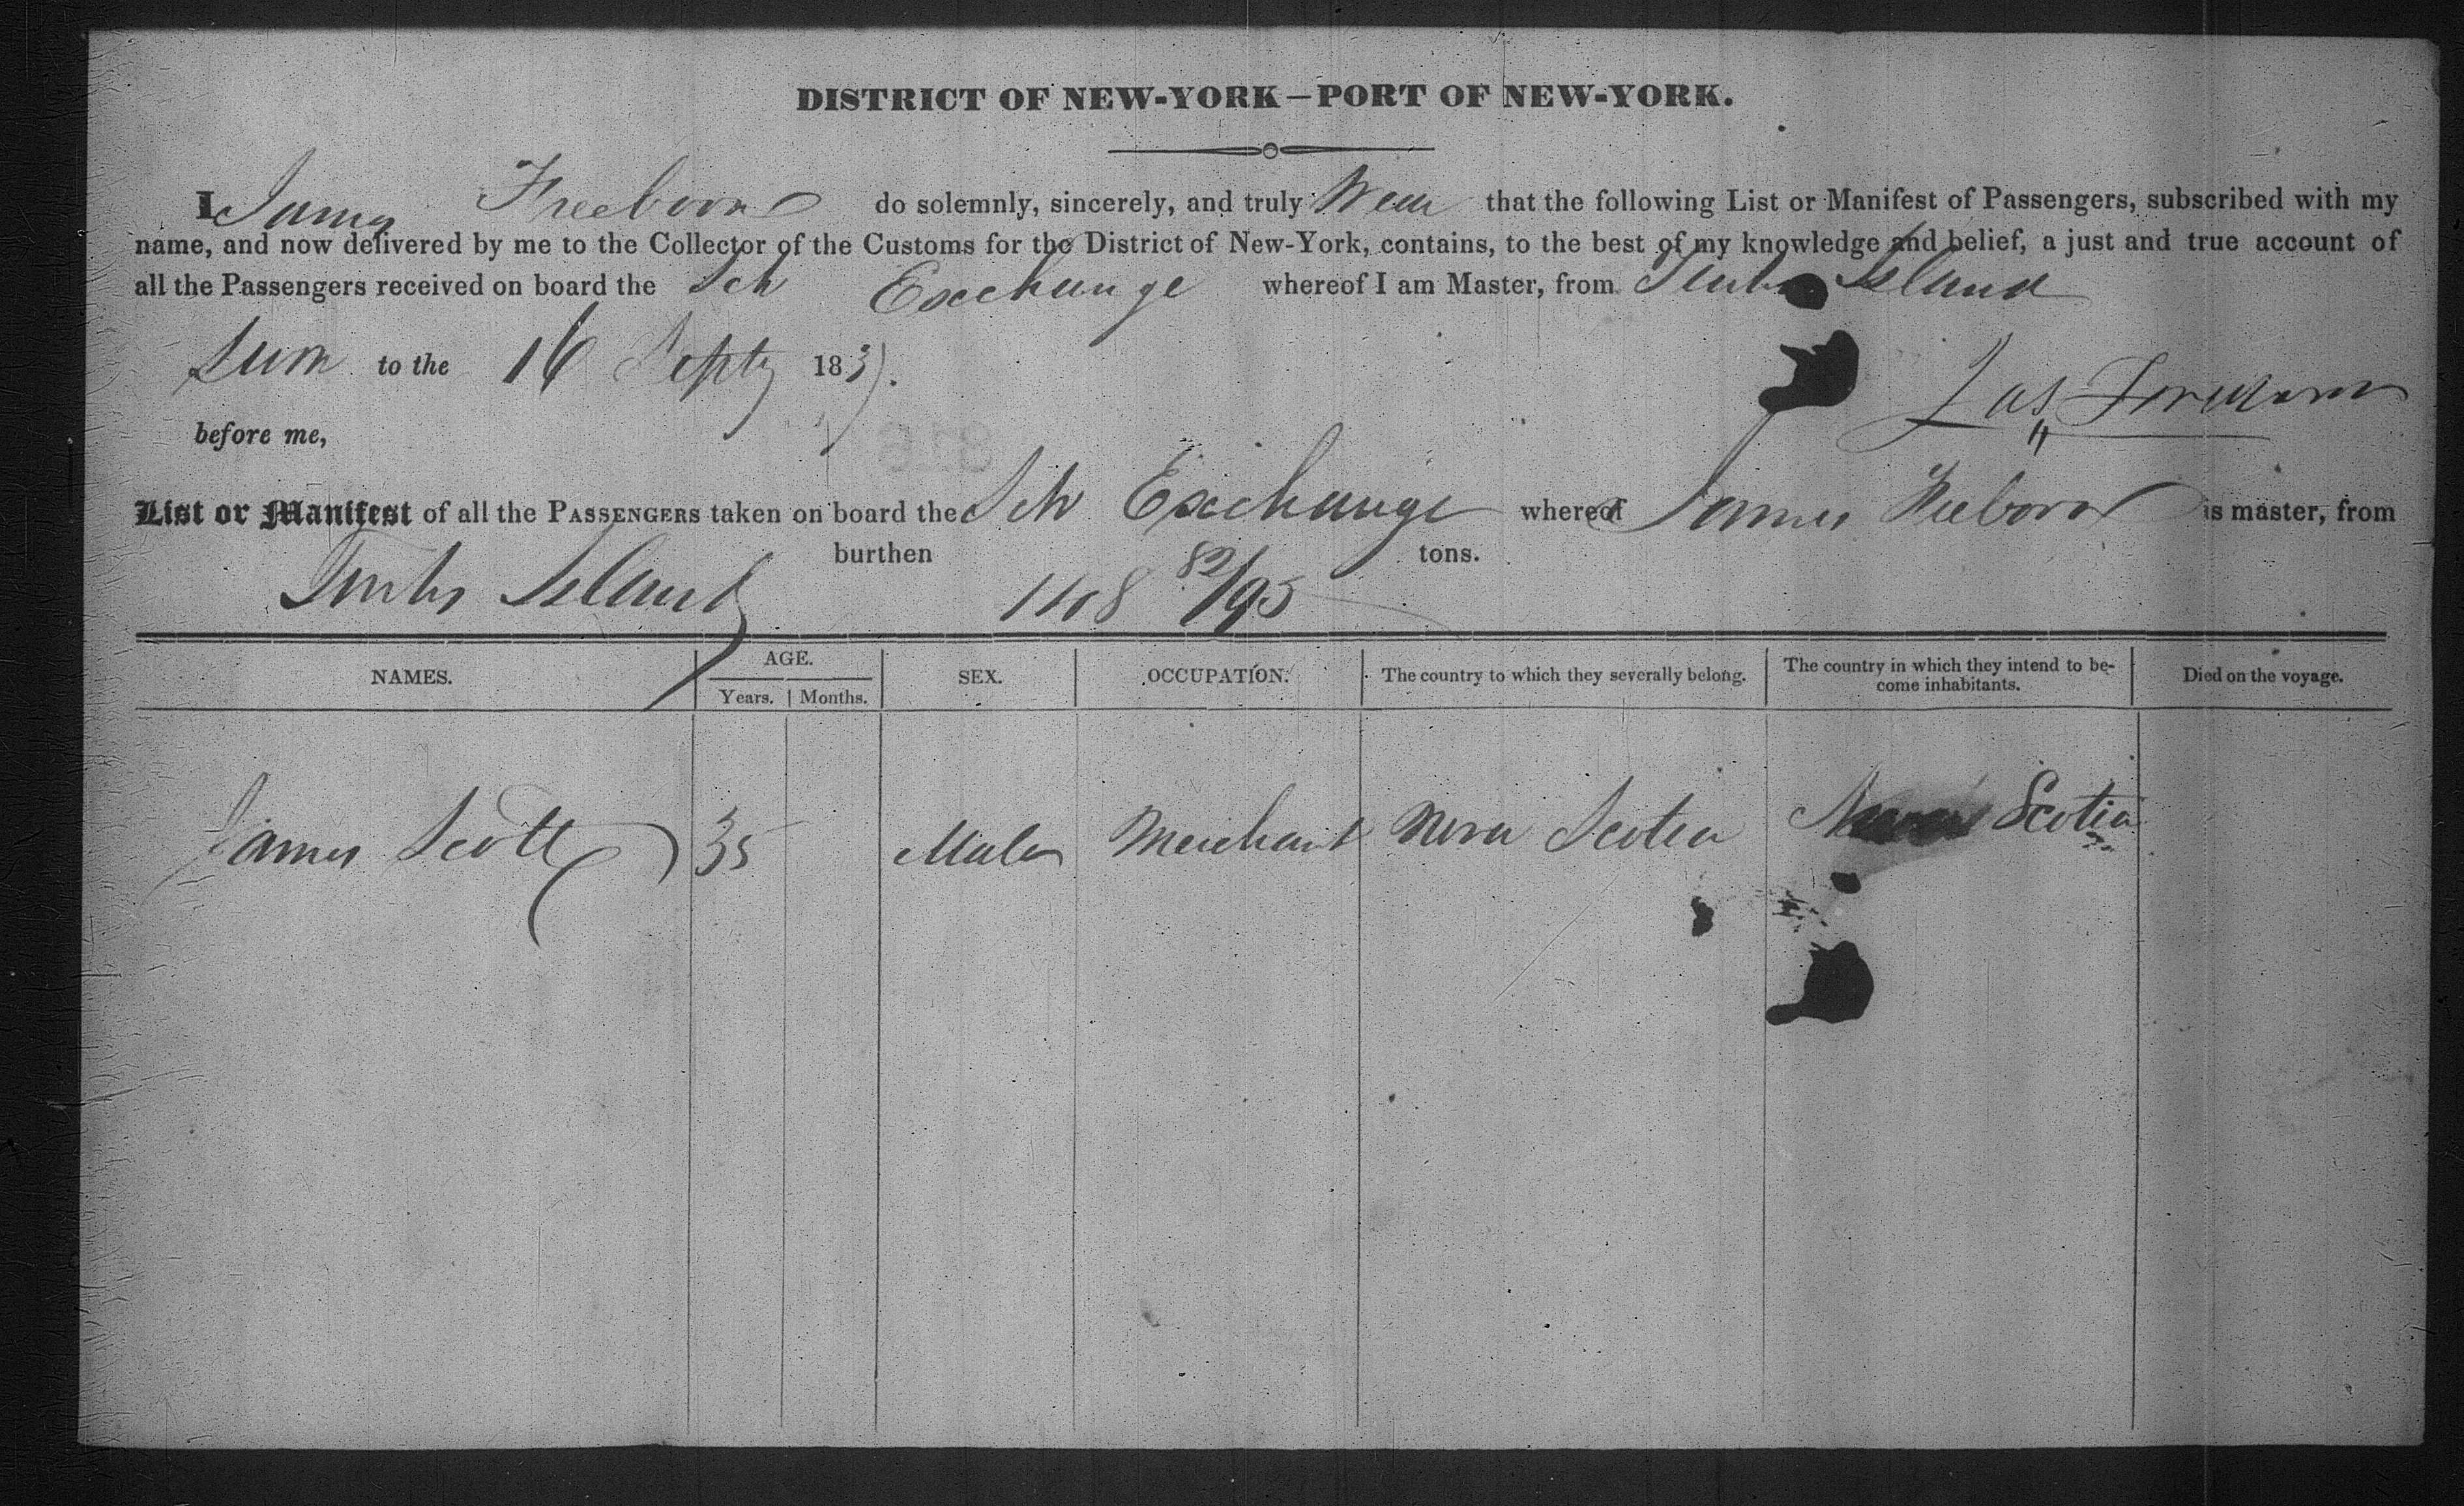 DISTRICT OF NEW-YORK—PORT OF NEW-YORK.
I James Freeborn do solemnly, sincerely, and truly swear that the following List or Manifest of Passengers, subscribed with my
name, and now delivered by me to the Collector of the Customs for the District of New-York, contains, to the best of my knowledge and belief, a just and true account of
all the Passengers received on board the Sch Exchange whereof I am Master, from Turks Island
to the 16 Sept 183
Jas Freeborn
before me,
List or Manifest of all the PASSENGERS taken on board the Sch Exchange whereof James Freeborn is master, from
Turks Island burthen 82/95 tons.
NAMES. AGE. Years. Months. SEX. OCCUPATION. The country to which they severally belong. The country in which they intend to be-come inhabitants. Died on the voyage.
James Scott 35 Male Merchant Nova Scotia Nova Scotia